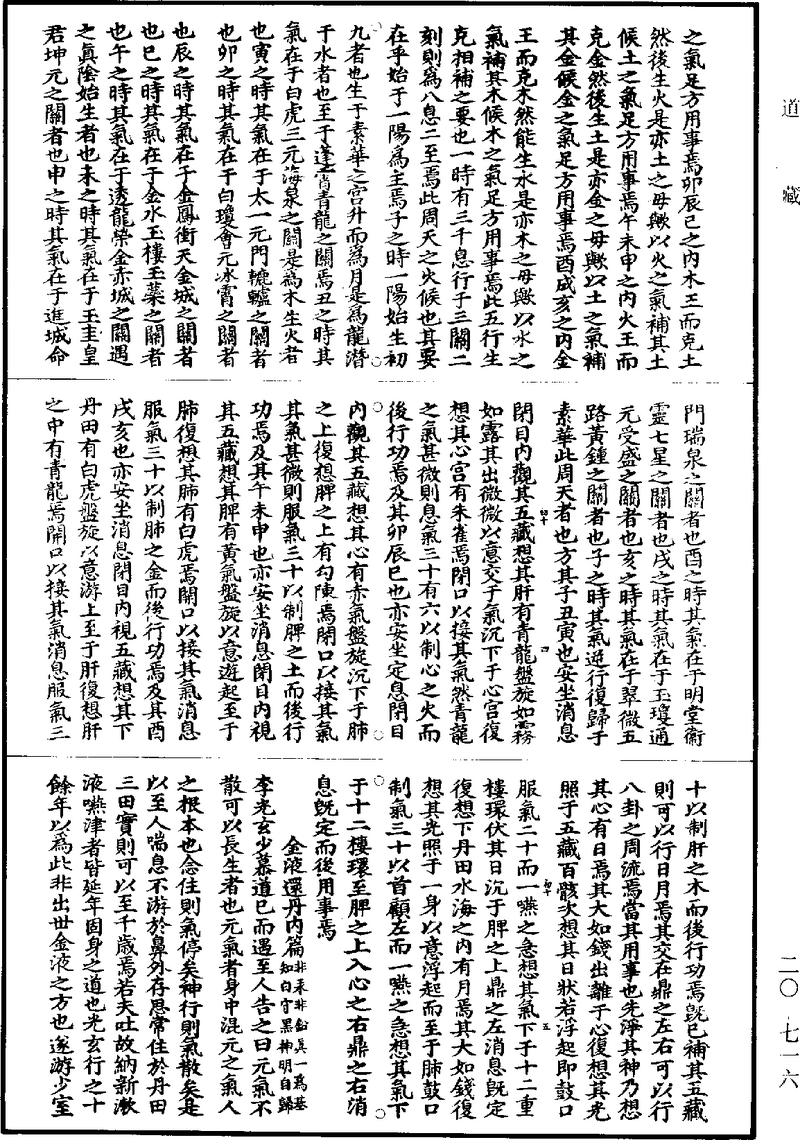 道藏
二〇·七一六
之氣足方用事焉卯辰巳之內木王而克土
然後生火是亦土之母歟以火之氣補其土
候土之氣足方用事焉午未申之內火王而
克金然後生土是亦金之母歟以土之氣補
其金候金之氣足方用事焉酉戌亥之內金
王而克木然能生水是亦木之母歟以水之
氣補其木候木之氣足方用事焉此五行生
克相補之要也一時有三千息行于三關二
刻則爲八息二至焉此周天之火候也其要
在乎始于一陽爲主焉子之時一陽始生初
九者也生于素華之宮升而爲月是爲龍潛
于水者也至于蓬宵青龍之關焉丑之時其
氣在于白虎三元海泉之關是爲木生火者
也寅之時其氣在于太一元門轆轤之關者
也卯之時其氣在于白瓊會元冰霄之關者
也辰之時其氣在于金鳳衝天金城之關者
也巳之時其氣在于金水玉樓玉蘂之關者
也午之時其氣在于透龍榮金赤城之關遇
之眞陰始生者也未之時其氣在于玉圭皇
君坤元之關者也申之時其氣在于進城命
門瑞泉之關者也酉之時其氣在于明堂衞
靈七星之關者也戌之時其氣在于玉瓊通
元受盛之關者也亥之時其氣在于翠微五
路黃鍾之關者也子之時其氣逆行復歸于
素華此周天者也方其子丑寅也安坐消息
閉目內觀其五藏想其肝有青龍盤旋如霧
如露其出微微以意交于氣沉下于心宮復
想其心宮有朱雀焉閉口以接其氣然青龍
之氣甚微則息氣三十有六以制心之火而
後行功焉及其卯辰巳也亦安坐定息閉目
內觀其五藏想其心有赤氣盤旋沉下于肺
之上復想脾之上有勾陳焉閉口以接其氣
其氣甚微則服氣三十以制脾之土而後行
功焉及其午未申也亦安坐消息閉目內視
其五藏想其脾有黃氣盤旋以意遊起至于
肺復想其肺有白虎焉開口以接其氣消息
服氣三十以制肺之金而後行功焉及其酉
戌亥也亦安坐消息閉目內視五藏想其下
丹田有白虎盤旋以意游上至于肝復想肝
之中有青龍焉開口以接其氣消息服氣三
十以制肝之木而後行功焉旣已補其五藏
則可以行日月焉其交在鼎之左右可以行
八卦之周流焉當其用事也先淨其神乃想
其心有日焉其大如錢出離于心復想其光
照于五藏百骸次想其日狀若浮起即鼓口
服氣二十而一嚥之急想其氣下于十二重
樓環伏其日沉于脾之上鼎之左消息旣定
復想下丹田水海之內有月焉其大如錢復
想其光照于一身以意浮起而至于肺鼓口
制氣三十以首顧左而一嚥之急想其氣下
于十二樓環至脾之上入心之右鼎之右消
息旣定而後用事焉
金液還丹內篇 非汞非鉛眞一爲基 知白守黑神明自歸
李光玄少慕道已而遇至人告之曰元氣不
散可以長生者也元氣者身中混元之氣人
之根本也念住則氣停矣神行則氣散矣是
以至人喘息不游於鼻外存思常住於丹田
三田實則可以至千歲焉若夫吐故納新漱
液嚥津者皆延年固身之道也光玄行之十
餘年以爲此非出世金液之方也遂游少室